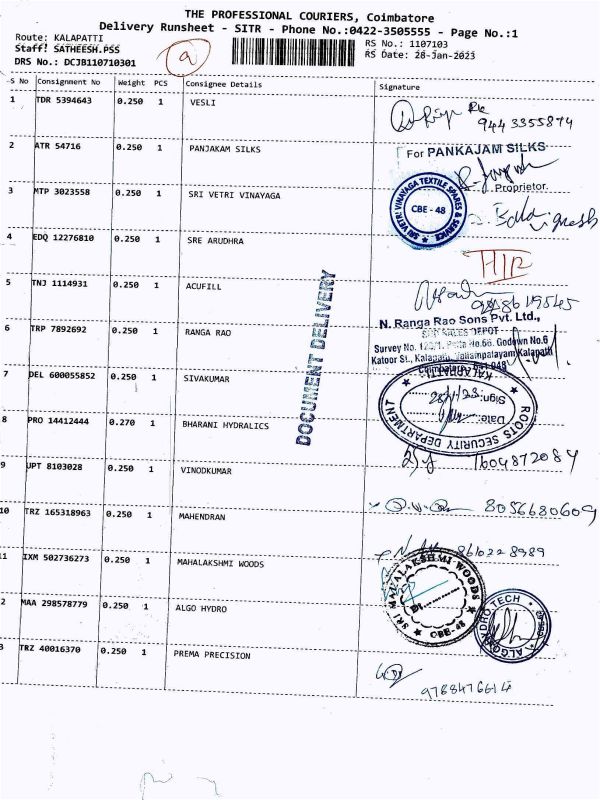 THE PROFESSIONAL COURIERS, Coimbatore
Delivery Runsheet - SITR - Phone No.:0422-3505555 - Page No.:1
Route: KALAPATTI
Staff: SATHEESH.PSS
DRS No.: DCJB110710301
a
RS No.: 1107103
RS Date: 28-Jan-2023
S No Consignment No Weight PCS Consignee Details Signature
1 TDR 5394643 0.250 1 VESLI
9443355874
2 ATR 54716 0.250 1 PANJAKAM SILKS
For PANKAJAM SILKS
Proprietor.
3 MTP 3023558 0.250 1 SRI VETRI VINAYAGA
SRI VETRI VINAYAGA TEXTILE SPARES & SERVICE
CBE - 48
4 EDQ 12276810 0.250 1 SRE ARUDHRA
5 TNJ 1114931 0.250 1 ACUFILL
6 TRP 7892692 0.250 1 RANGA RAO
N. Ranga Rao Sons Pvt. Ltd.,
Survey No. Godown No.6
Katoor St., Kalapatti, Vallampalayam, Kalapatti
DOCUMENT DELIVERY
7 DEL 600055852 0.250 1 SIVAKUMAR
ROOTS SECURITY DEPARTMENT
KALAPATTI
Sign:
Date:
8 PRO 14412444 0.270 1 BHARANI HYDRALICS
9 UPT 8103028 0.250 1 VINODKUMAR
1604872084
10 TRZ 165318963 0.250 1 MAHENDRAN
8056680609
11 IXM 502736273 0.250 1 MAHALAKSHMI WOODS
8610228989
SRI MAHALAKSHMI WOODS
CBE-48
2 MAA 298578779 0.250 1 ALGO HYDRO
ALGO HYDRO TECH
3 TRZ 40016370 0.250 1 PREMA PRECISION
9788476614